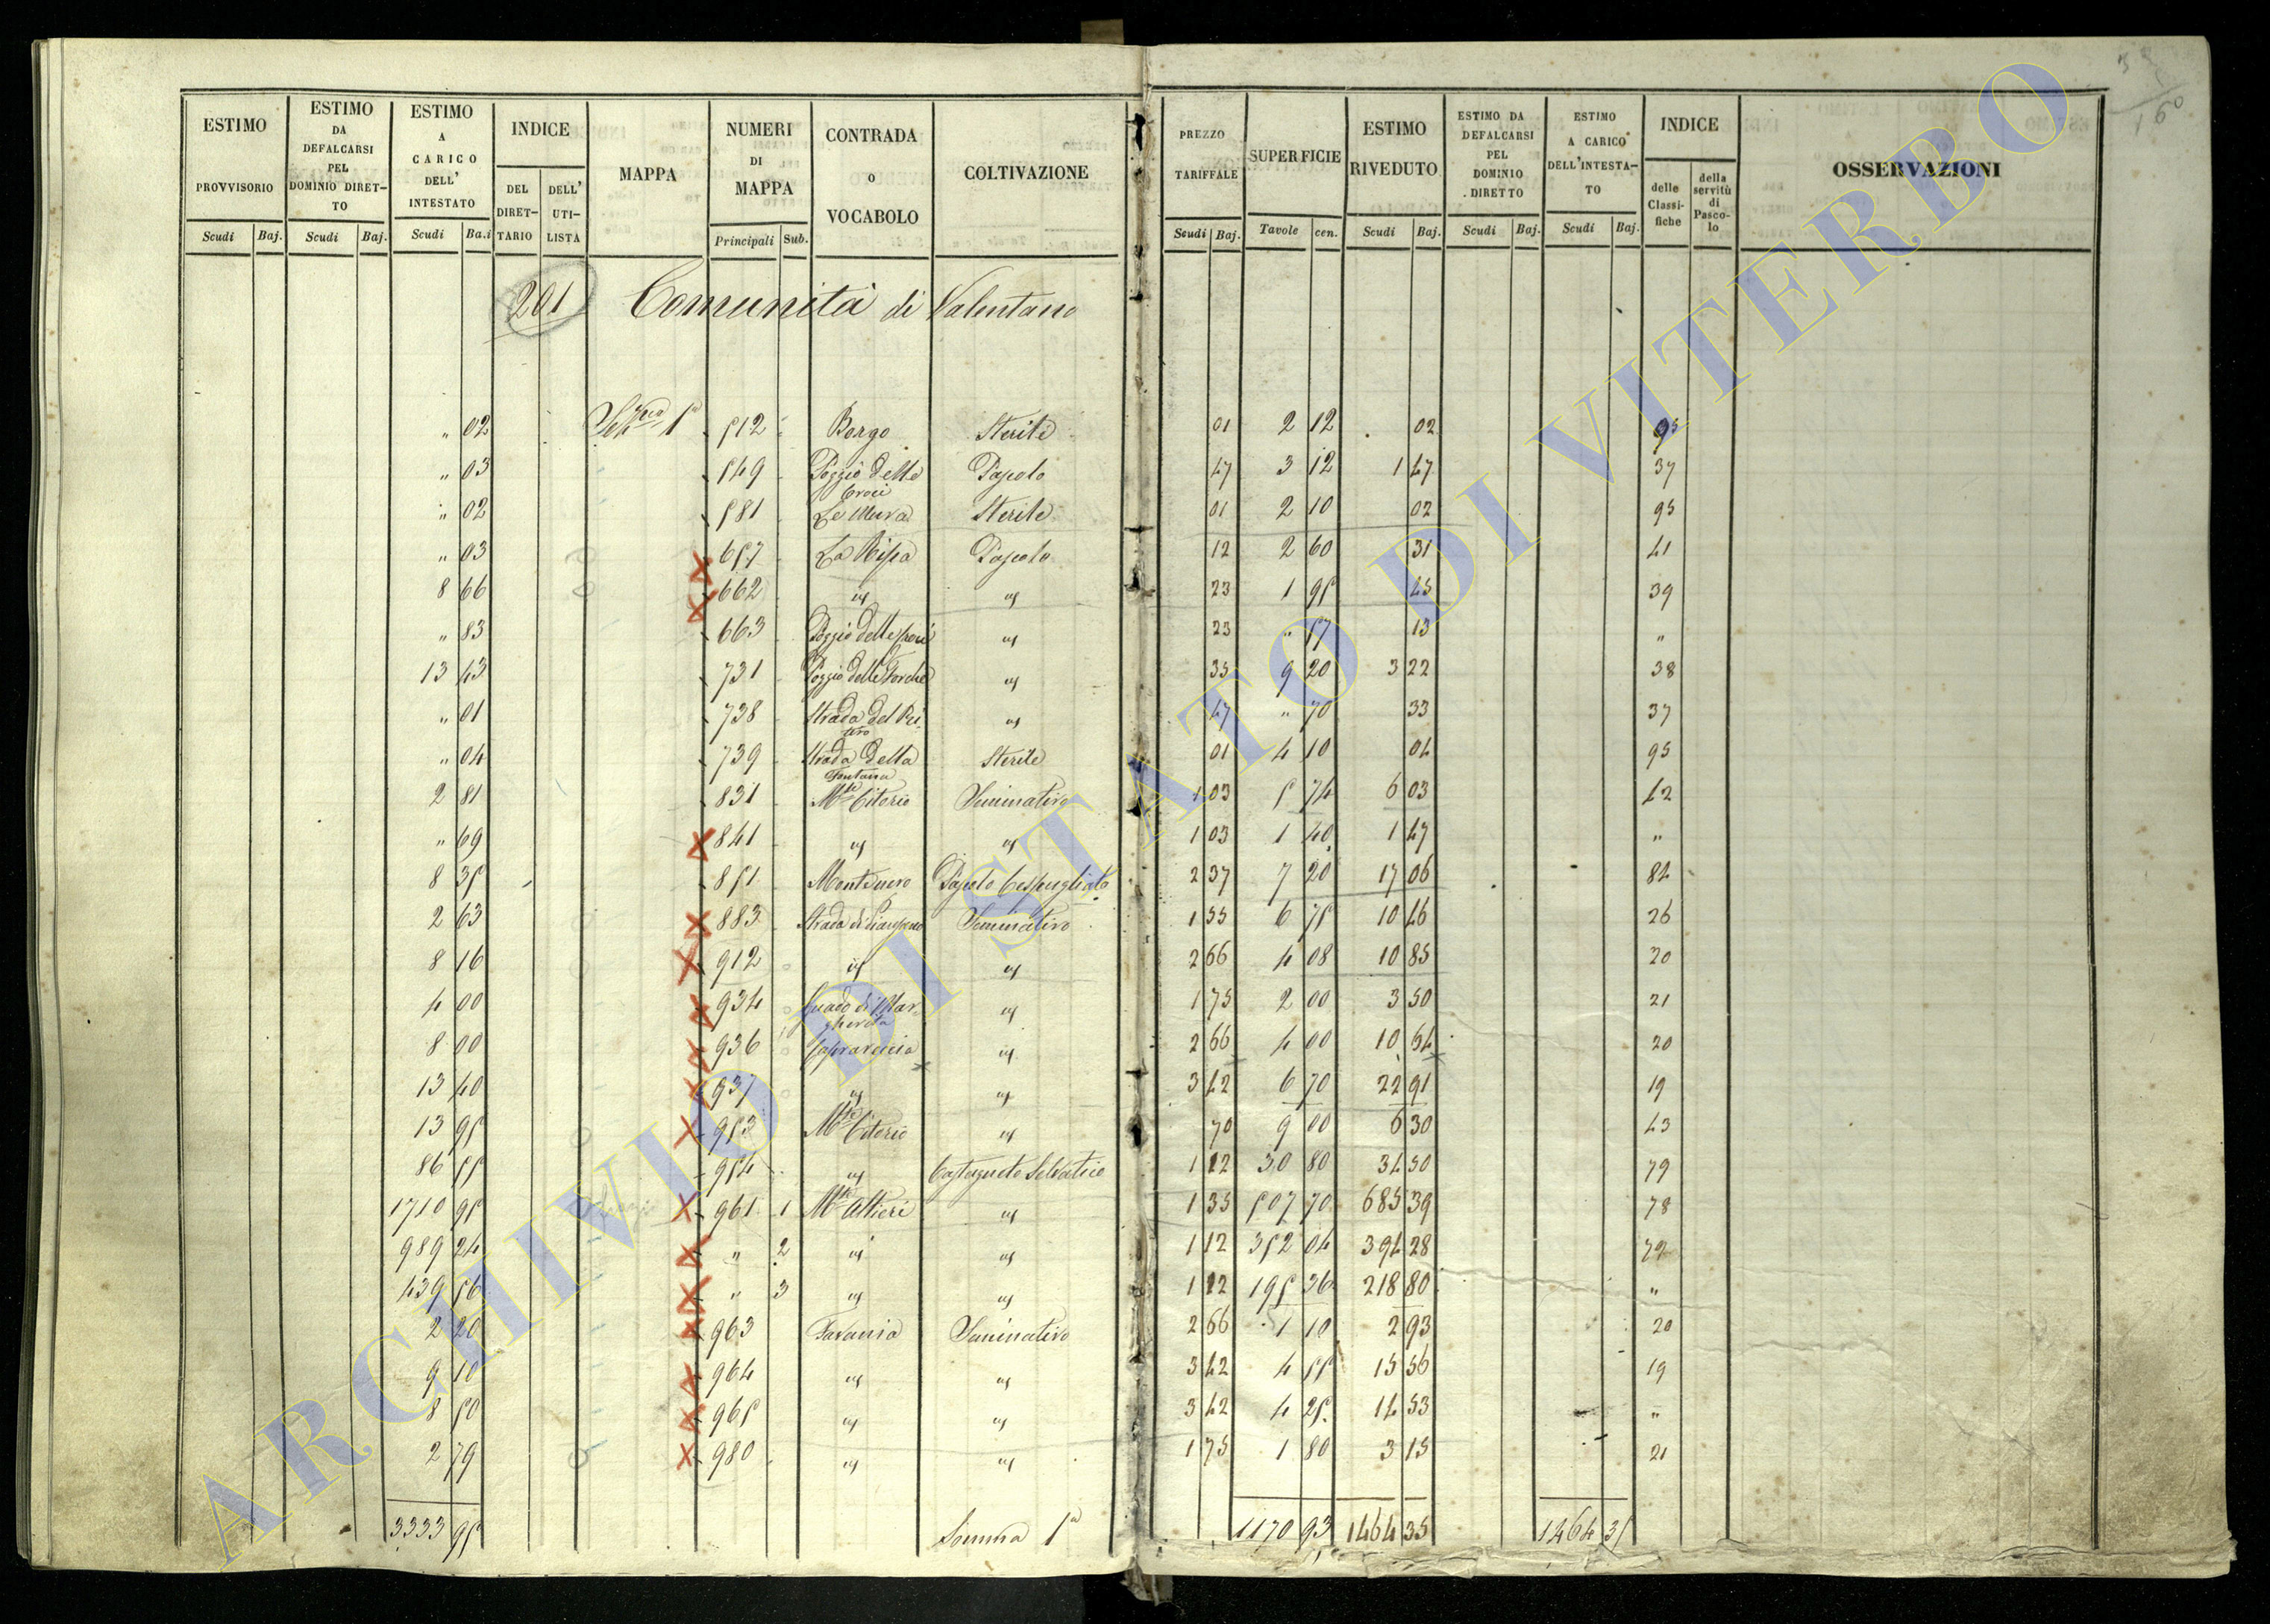 ESTIMO PROVVISORIO
ESTIMO DA DEFALCARSI PEL DOMINIO DIRET-TO
ESTIMO A CARICO DELL' INTESTATO
INDICE
DEL DIRET-TARIO
DELL' UTI-LISTA
MAPPA
NUMERI DI MAPPA
CONTRADA o VOCABOLO
COLTIVAZIONE
Scudi Baj. Scudi Baj. Scudi Ba.i Principali Sub.
PREZZO TARIFFALE
SUPERFICIE
ESTIMO RIVEDUTO
ESTIMO DA DEFALCARSI PEL DOMINIO DIRETTO
ESTIMO A CARICO DELL'INTESTA-TO
INDICE
delle Classi-fiche
della servitù di Pasco-lo
OSSERVAZIONI
Scudi Baj. Tavole cen. Scudi Baj. Scudi Baj. Scudi Baj.
201 Comunità di Valentano
" 02 512 Borgo Sterile 01 2 12 02 95
" 03 549 Poggio delle Croci Pascolo 47 3 12 1 47 37
" 02 581 Le Mura Sterile 01 2 10 02 95
" 03 657 La Ripa Pascolo 12 2 60 31 41
8 66 662 us us 23 1 95 45 39
" 83 663 Poggio delle us 23 " 57 13 "
13 43 731 Poggio delle Forche us 35 9 20 3 22 38
" 01 738 Strada del us 47 " 70 33 37
" 04 739 Strada della Fontana Sterile 01 4 10 04 95
2 81 831 Mte Citorio Seminativo 1 03 5 74 6 03 42
" 69 841 us us 1 03 1 40 1 47 "
8 35 851 Montenero Pascolo Cespugliato 2 37 7 20 17 06 84
2 63 883 Strada di Seminativo 1 55 6 75 10 46 26
8 16 912 us us 2 66 4 08 10 85 20
4 00 934 Guado di Margherita us 1 75 2 00 3 50 21
8 00 936 us 2 66 4 00 10 64 20
13 40 937 us us 3 42 6 70 22 91 19
13 95 953 Mte Citorio us 70 9 00 6 30 43
86 55 954 us Castagneto Selvatico 1 12 30 80 34 50 79
1710 95 961 1 Mte Altieri us 1 35 507 70 685 39 78
989 24 " 2 us us 1 12 352 04 394 28 79
439 56 " 3 us us 1 12 195 36 218 80 "
2 20 963 Favania Seminativo 2 66 1 10 2 93 20
9 10 964 us us 3 42 4 55 15 56 19
8 50 965 us us 3 42 4 25 14 53 "
2 79 980 us us 1 75 1 80 3 15 21
3333 95 Somma 1a 1170 93 1464 35 1464 35
ARCHIVIO DI STATO DI VITERBO